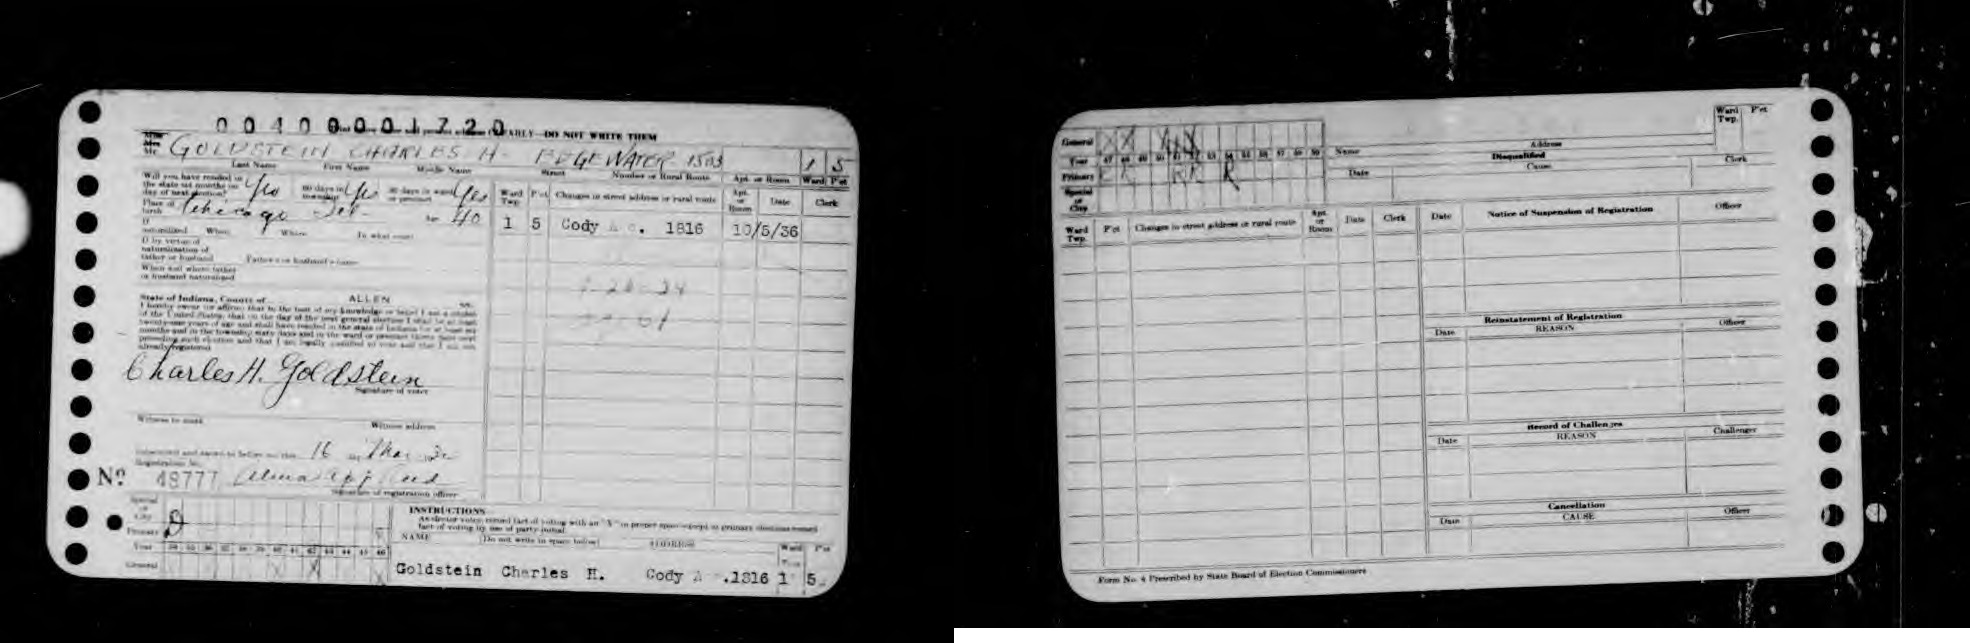 0040 0001720
EARLY—DO NOT WRITE THEM
Miss
Mrs
Mr. GOLDSTEIN CHARLES H- EDGEWATER 1503 1 5
Last Name First Name Middle Name Street Number or Rural Route Apt. or Room Ward P'ct
Will you have resided in
the state six months on Yes 60 days in township Yes 30 days in ward or precinct Yes
day of next election?
Place of birth Chicago
If naturalized When Where In what court
If by virtue of
naturalization of
father or husband Father's or husband's name
When and where father
or husband naturalized
State of Indiana, County of ALLEN ss.
I hereby swear (or affirm) that to the best of my knowledge or belief I am a citizen
of the United States; that on the day of the next general election I shall be at least
twenty-one years of age and shall have resided in the state of Indiana for at least six
months and in the township sixty days and in the ward or precinct thirty days next
preceding such election and that I am legally qualified to vote and that I am not
already registered
Charles H. Goldstein
Signature of voter
Witness to mark Witness address
Subscribed and sworn to before me this 16
Registration No.
Nº 48777
Signature of registration officer
Ward Twp. P'ct Changes in street address or rural route Apt. or Room Date Clerk
1 5 Cody 1816 10/5/36
Special or City
Primary D
Year
General X X
INSTRUCTIONS
As elector votes, record fact of voting with an "X" in proper space except in primary elections record
fact of voting by use of party initial.
NAME (Do not write in space below) ADDRESS Ward Twp. P'ct
Goldstein Charles H. Cody 1816 1 5
General X X X X
Year 47 48 49 50 51 52 53 54 55 56 57 58 59
Primary R R R R R
Special or City
Name Address Ward Twp. P'ct
Disqualified
Date Cause Clerk
Ward Twp. P'ct Changes in street address or rural route Apt. or Room Date Clerk
Date Notice of Suspension of Registration Officer
Reinstatement of Registration
Date REASON Officer
Record of Challenges
Date REASON Challenger
Cancellation
Date CAUSE Officer
Form No. 4 Prescribed by State Board of Election Commissioners